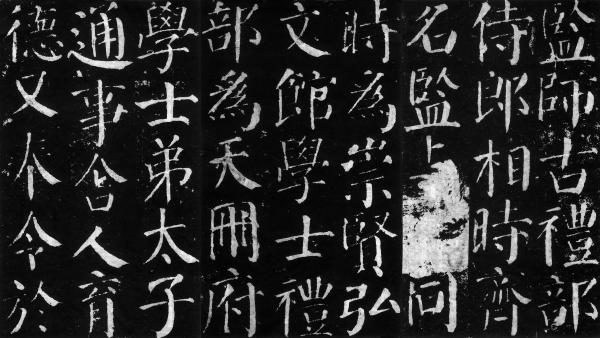 監師古禮部
侍郎相時齊
名監同
時爲崇賢弘
文館學士禮
部爲天冊府
學士弟太子
通事舍人育
德又奉令於